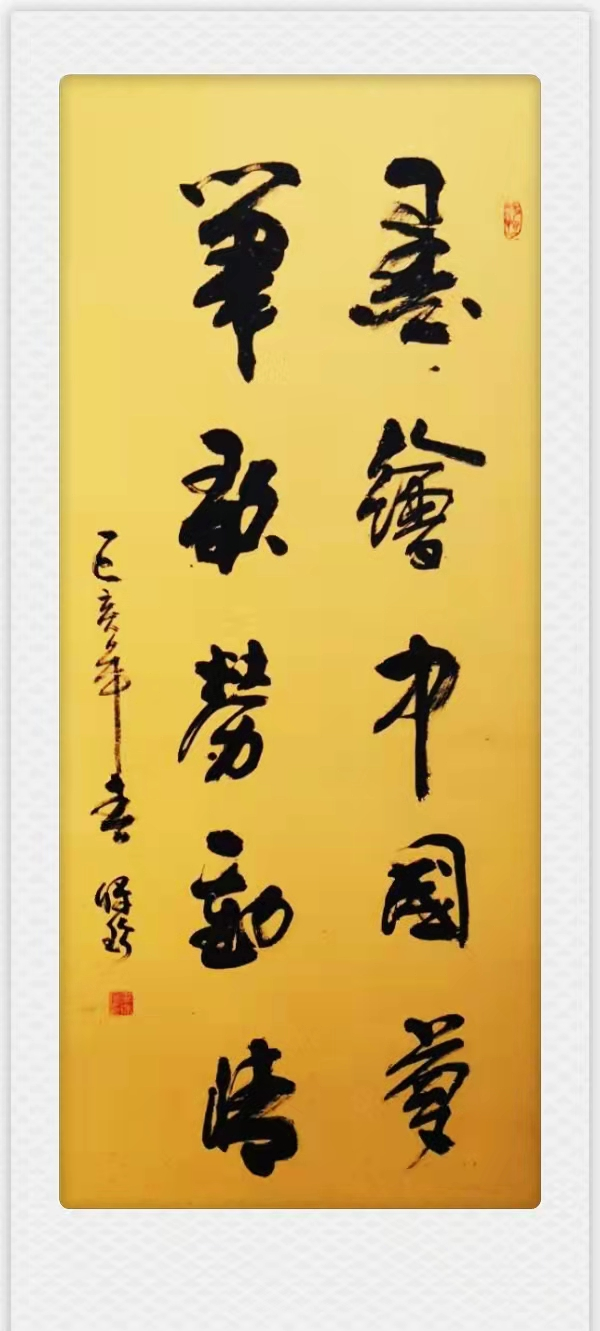 墨繪中國夢
筆歌勞動情
己亥年春